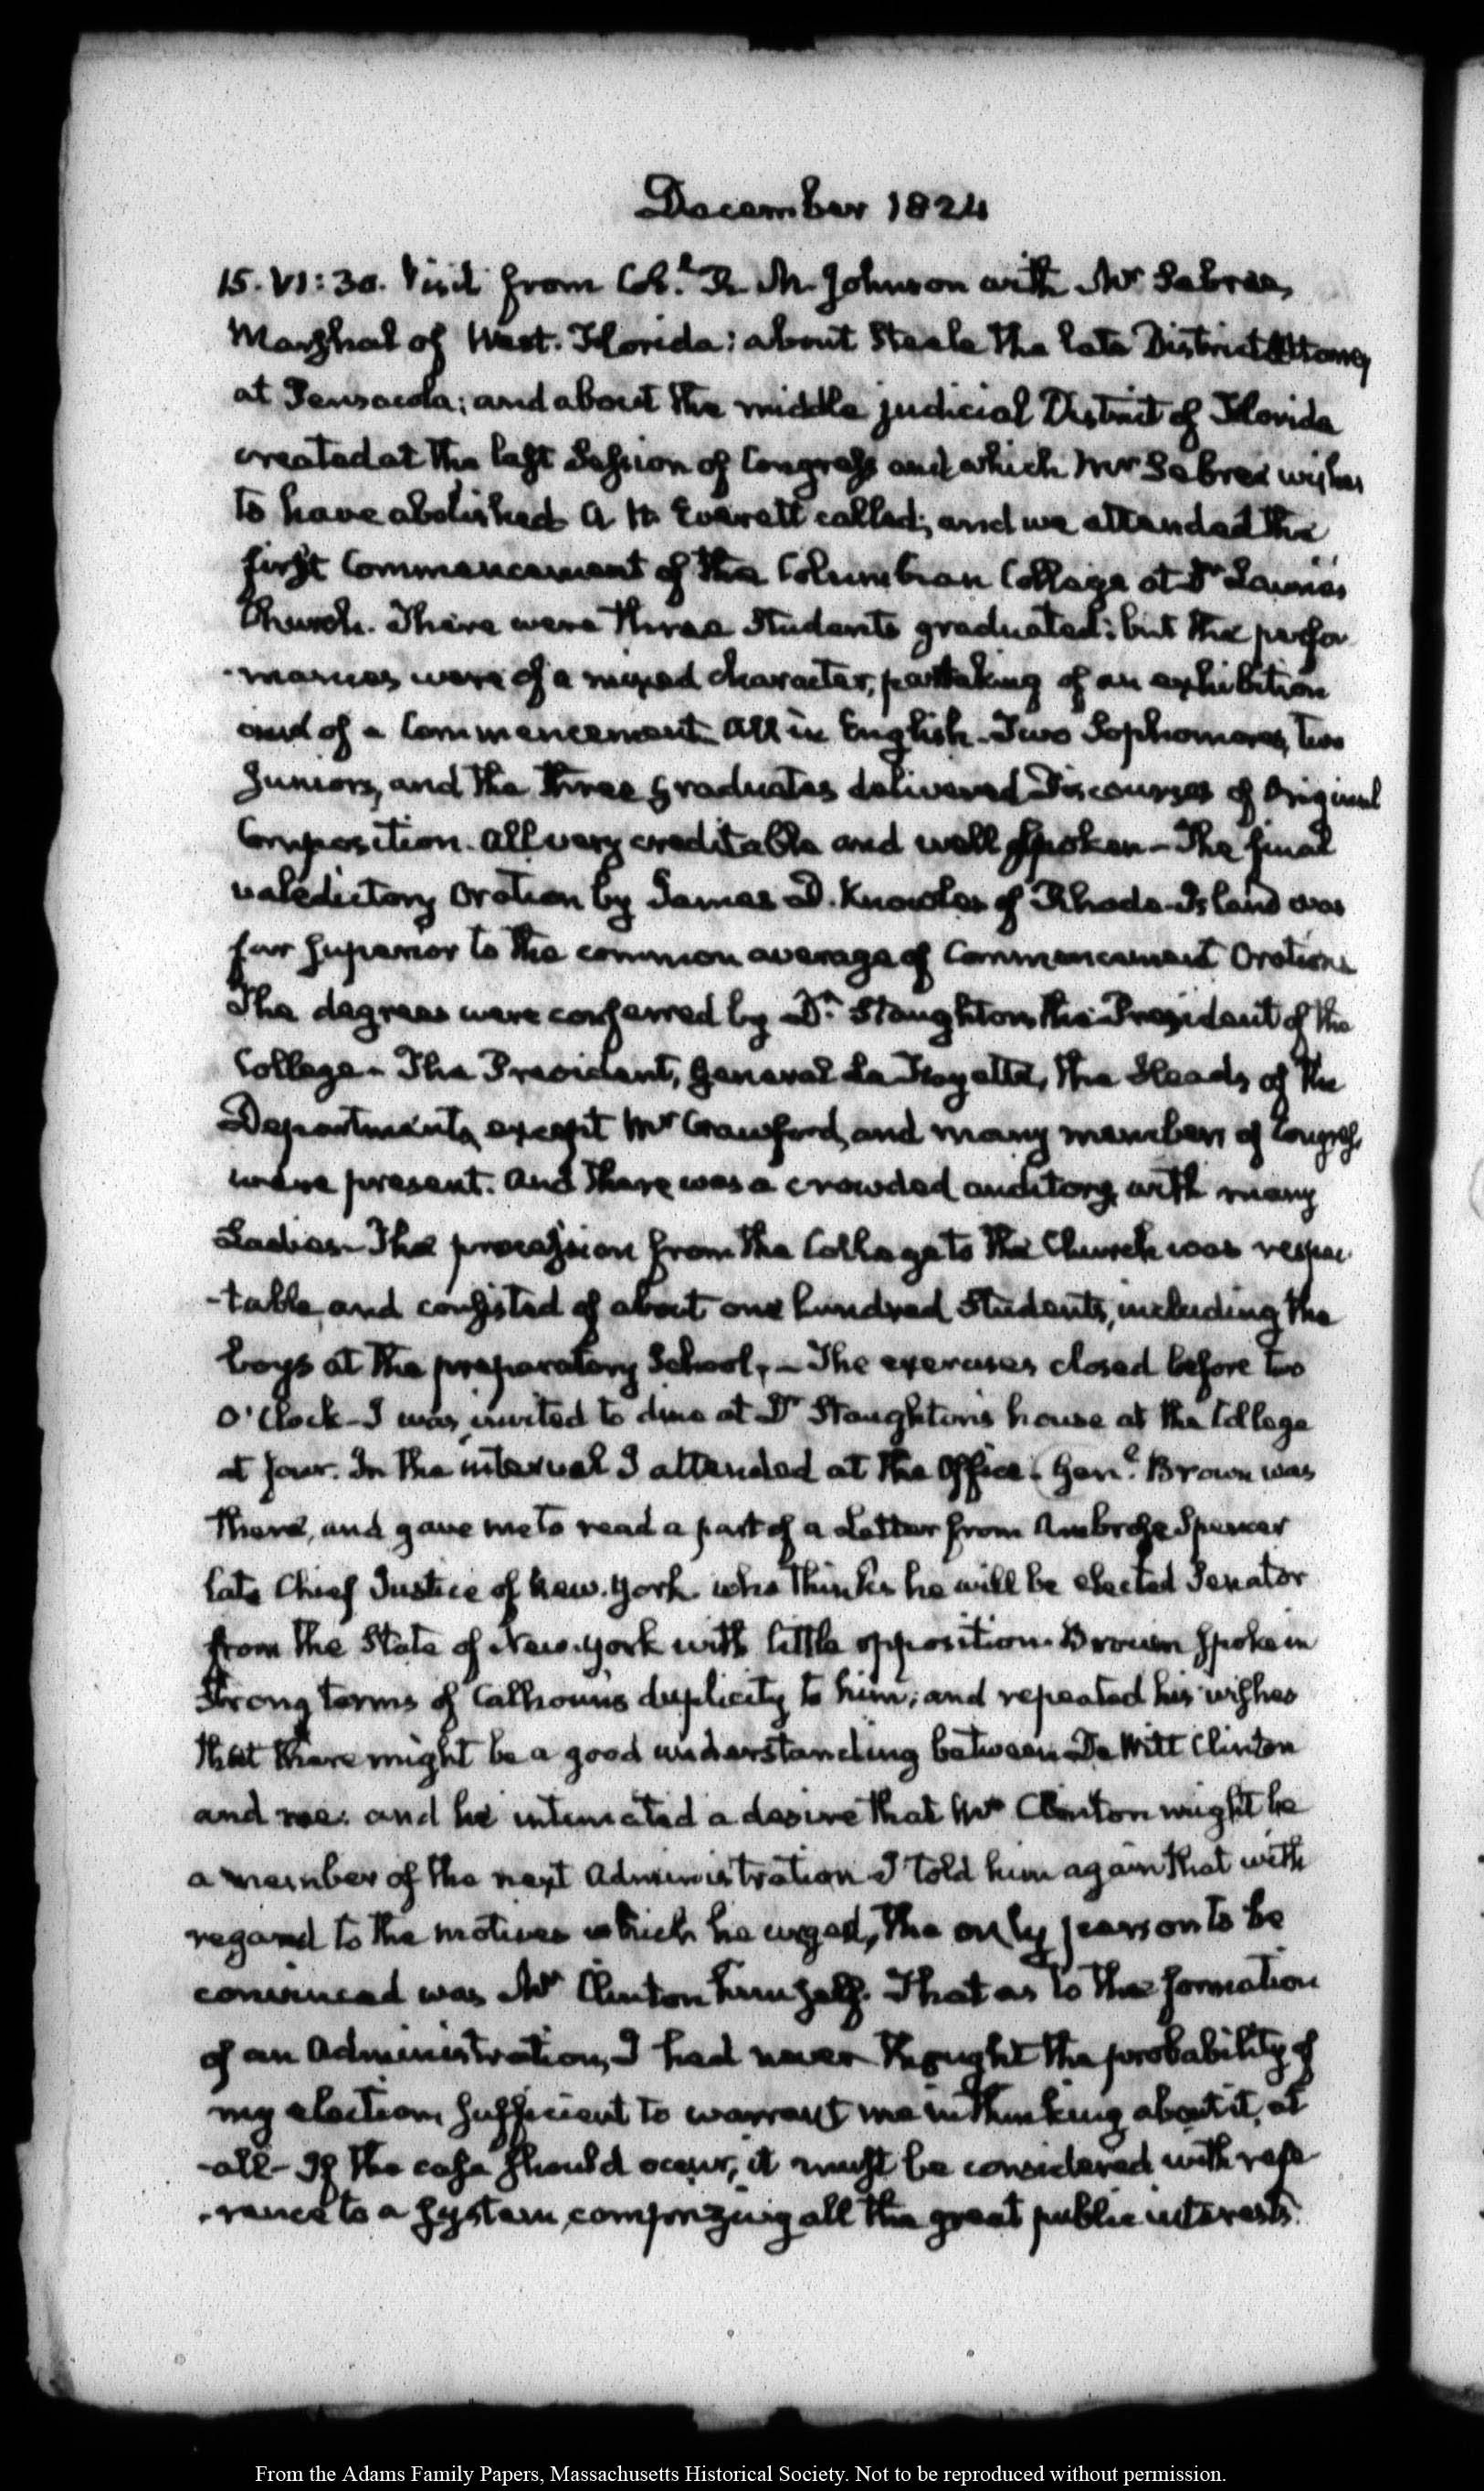 December 1824
15. VI:30. Visit from Coll. R. M. Johnson with Mr Sebree,
Marshal of West-Florida: about Steele the late District Attorney
at Pensacola; and about the middle judicial District of Florida
created at the last Session of Congress and which Mr Sebree wishes
to have abolished A H Everett called; and we attended the
first Commencement of the Columbian College at Dr Laurie's
Church. There were three Students graduated: but the perfor
-mances were of a mixed character, partaking of an exhibition
and of a Commencement. All in English. Two Sophomores, two
Juniors, and the three graduates delivered Discourses of Original
Composition. All very creditable and well spoken— The final
valedictory Oration by James D. Knowles of Rhode-Island was
far superior to the common average of Commencement Orations
The degrees were conferred by Dr. Staughton the President of the
College— The President, General La Fayette, the Heads of the
Departments, except Mr Crawford, and many members of Congress,
were present. And there was a crowded auditory, with many
Ladies— The procession from the College to the Church was respec
-table, and consisted of about one hundred Students, including the
boys at the preparatory School,— The exercises closed before two
O'Clock— I was invited to dine at Dr Staughton's house at the College
at four. In the interval I attended at the Office. Genl. Brown was
there, and gave me to read a part of a Letter from Ambrose Spencer
late Chief Justice of New-York who thinks he will be elected Senator
from the State of New-York with little opposition. Brown spoke in
strong terms of Calhoun's duplicity to him; and repeated his wishes
that there might be a good understanding between De Witt Clinton
and me: and he intimated a desire that Mr Clinton might be
a member of the next Administration I told him again that with
regard to the motives which he urged, the only person to be
convinced was Mr Clinton himself. That as to the formation
of an Administration, I had never thought the probability of
my election sufficient to warrant me in thinking about it, at
-all— If the case should occur, it must be considered with refe
-rence to a system, comprizing all the great public interests.
From the Adams Family Papers, Massachusetts Historical Society. Not to be reproduced without permission.